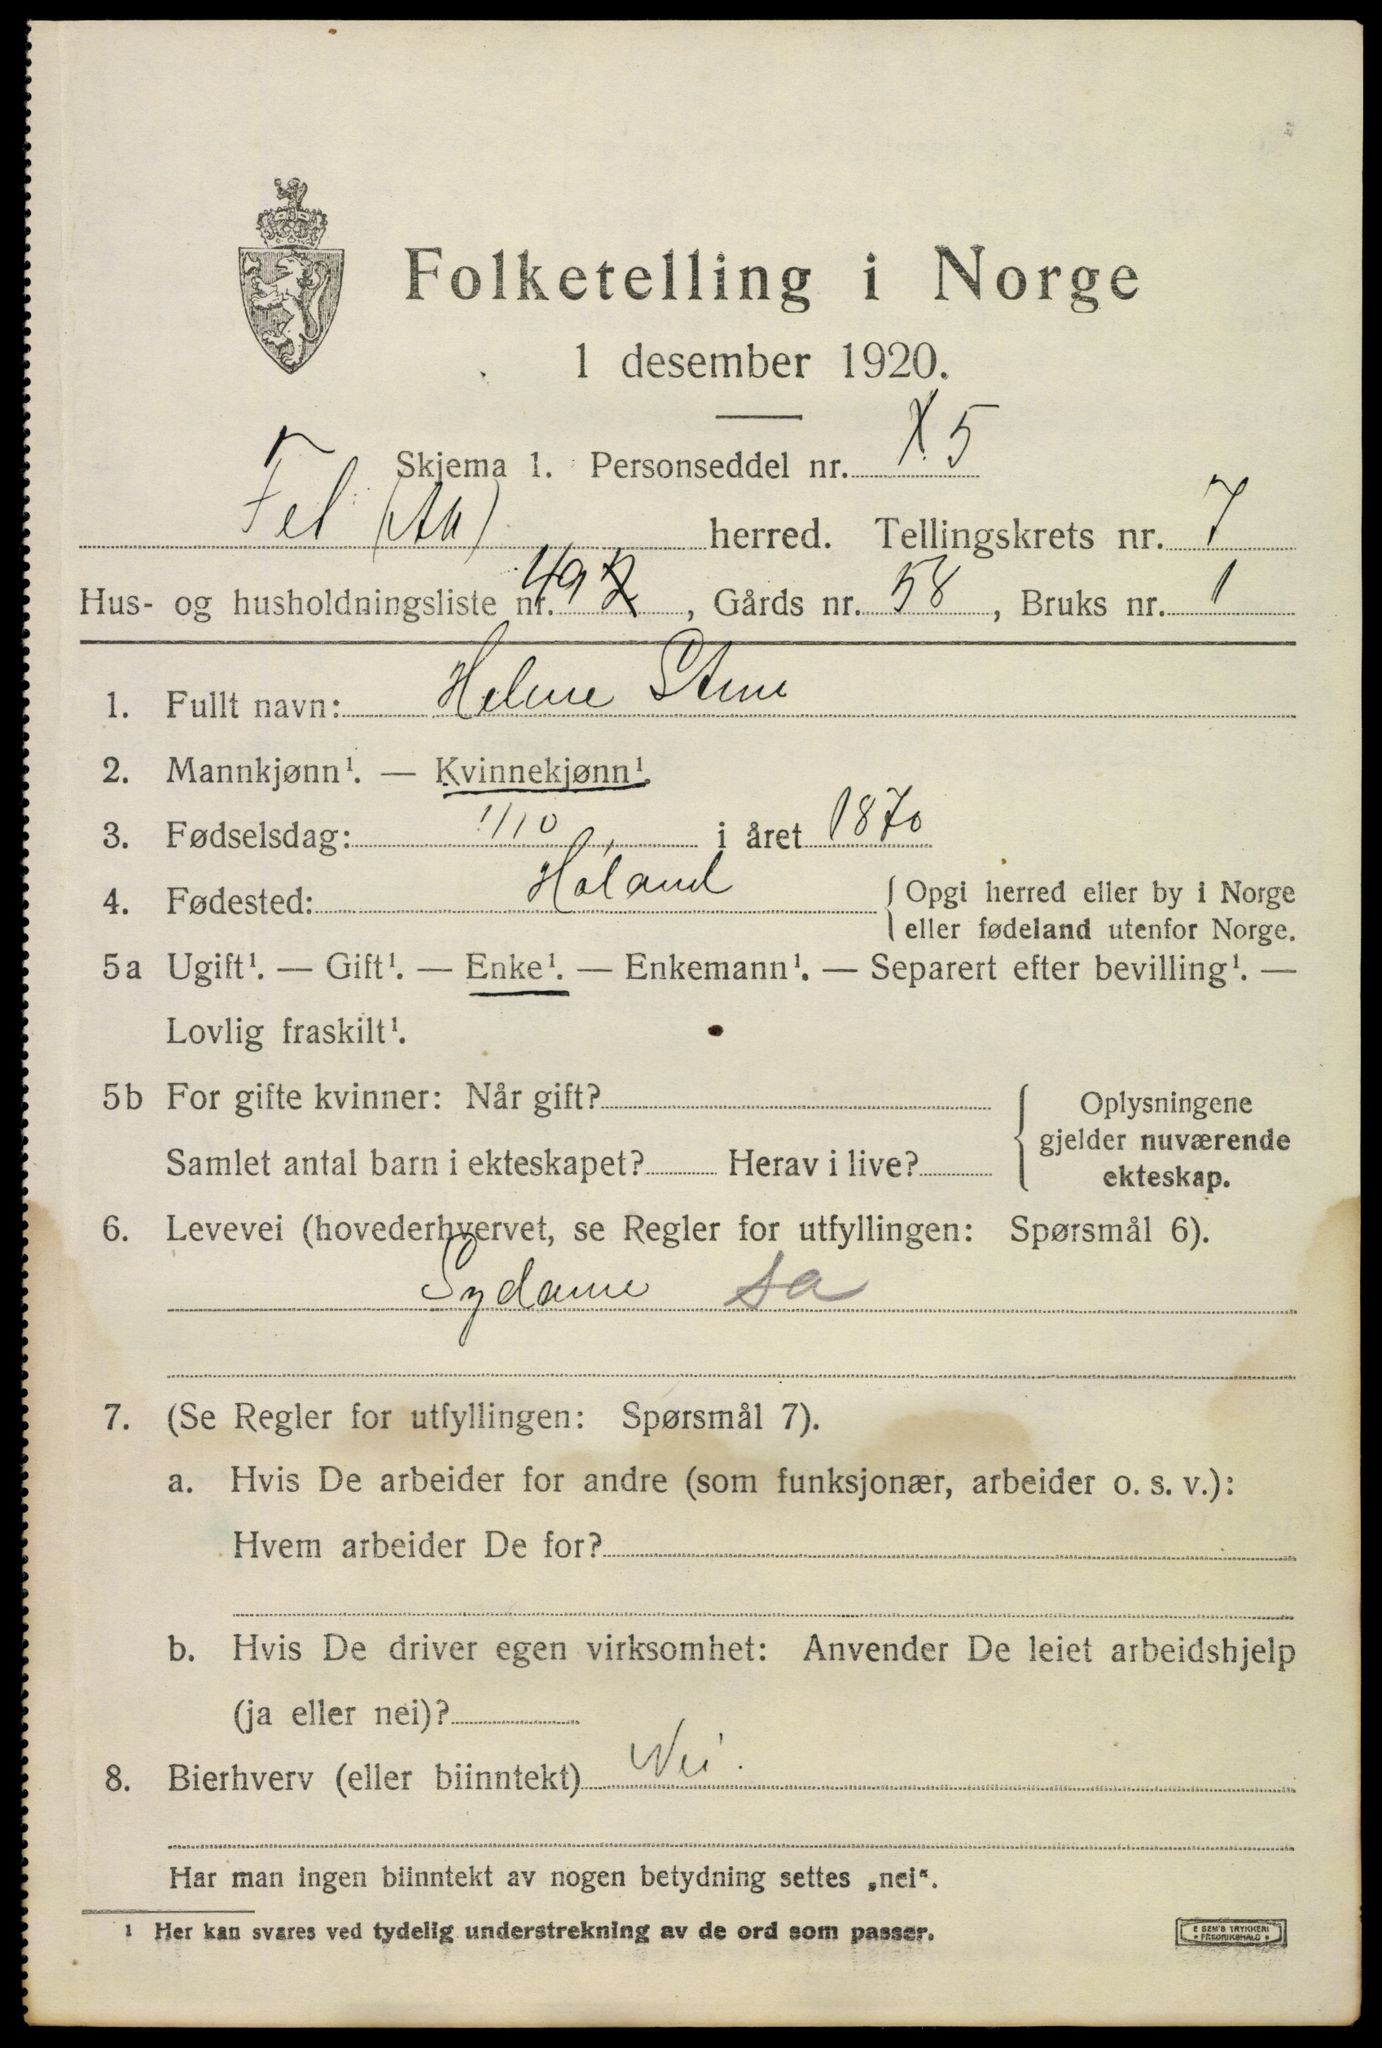 Folketelling i Norge
1 desember 1920.
Skjema 1. Personseddel nr. X 5
Fet (Ak) herred. Tellingskrets nr. 7
Hus- og husholdningsliste nr. 49, Gårds nr. 58, Bruks nr. 1
1. Fullt navn: Helene
2. Mannkjønn¹. — Kvinnekjønn¹.
3. Fødselsdag: 1/10 i året 1870
4. Fødested: Høland { Opgi herred eller by i Norge
eller fødeland utenfor Norge.
5a Ugift¹. — Gift¹. — Enke¹. — Enkemann¹. — Separert efter bevilling¹. —
Lovlig fraskilt¹.
5b For gifte kvinner: Når gift? { Oplysningene
gjelder nuværende
Samlet antal barn i ekteskapet? Herav i live?
ekteskap.
6. Levevei (hovederhvervet, se Regler for utfyllingen: Spørsmål 6).
Sydame sa
7. (Se Regler for utfyllingen: Spørsmål 7).
a. Hvis De arbeider for andre (som funksjonær, arbeider o. s. v.):
Hvem arbeider De for?
b. Hvis De driver egen virksomhet: Anvender De leiet arbeidshjelp
(ja eller nei)?
8. Bierhverv (eller biinntekt) Nei.
Har man ingen biinntekt av nogen betydning settes „nei“.
¹ Her kan svares ved tydelig understrekning av de ord som passer.
E SEM'S TRYKKERI
FREDRIKSHALD